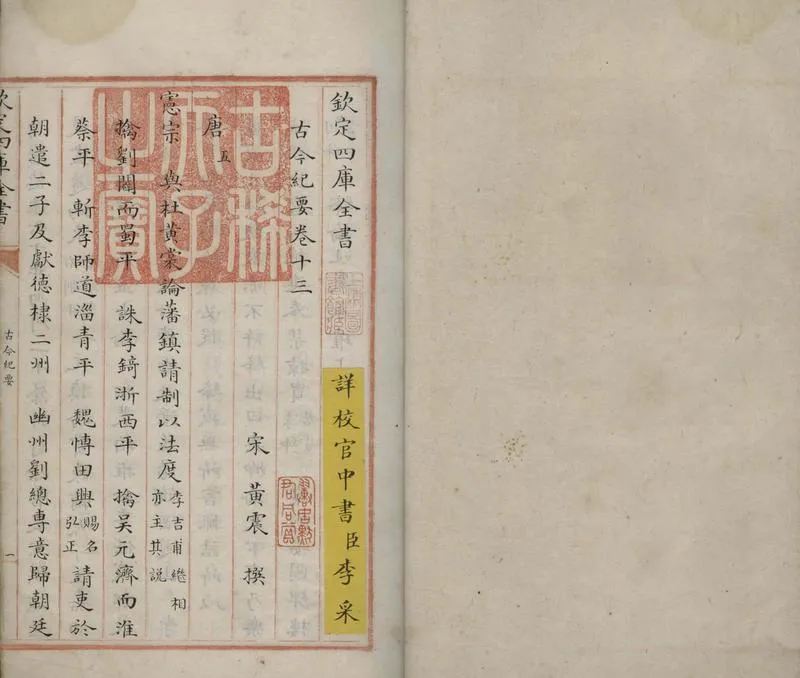 欽定四庫全書
詳校官中書臣李采
古今紀要卷十三
宋 黃震 撰
唐五
憲宗 與杜黃裳論藩鎮請制以法度李吉甫繼相亦主其説
擒劉闢而蜀平 誅李錡浙西平 擒吳元濟而淮
蔡平 斬李師道淄青平 魏博田興賜名弘正請吏於
朝遣二子及獻德棣二州 幽州劉總專意歸朝廷
欽定四庫全書
古今紀要
一
古稀天子之寶